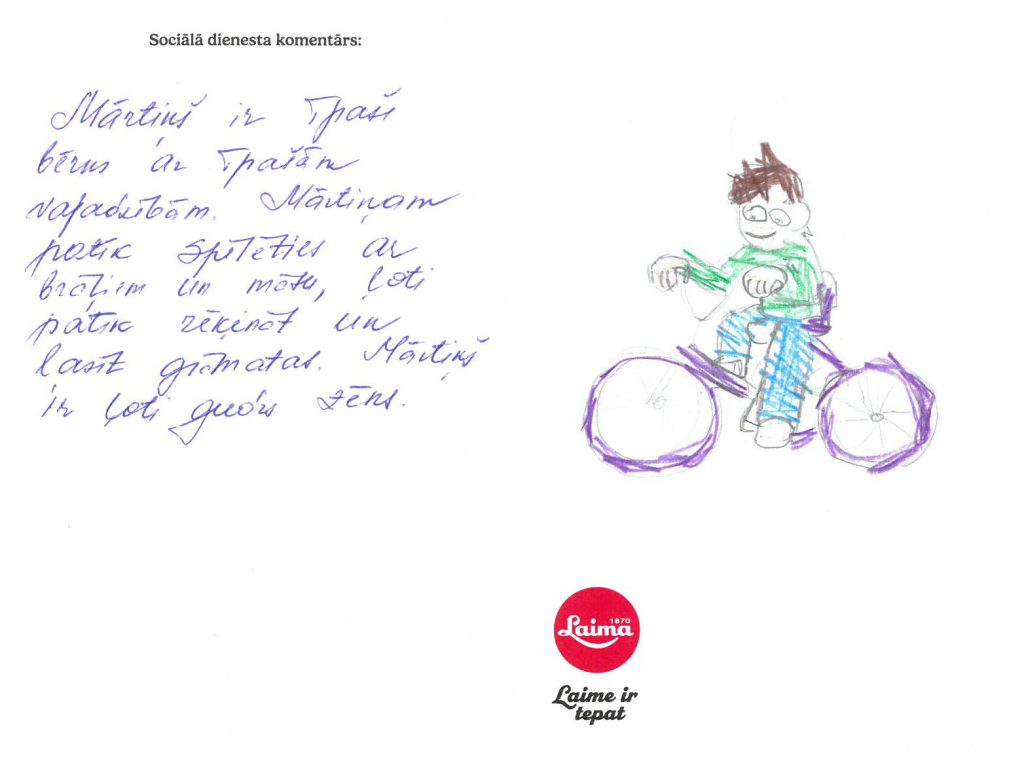 Sociālā dienesta komentārs:
Mārtiņš ir īpašs
bērns ar īpašām
vajadzībām. Mārtiņam
patīk spēlēties ar
brāļiem un māsu, ļoti
patīk rēķināt un
lasīt grāmatas. Mārtiņš
ir ļoti gudrs zēns.
Laima
1870
Laime ir
tepat